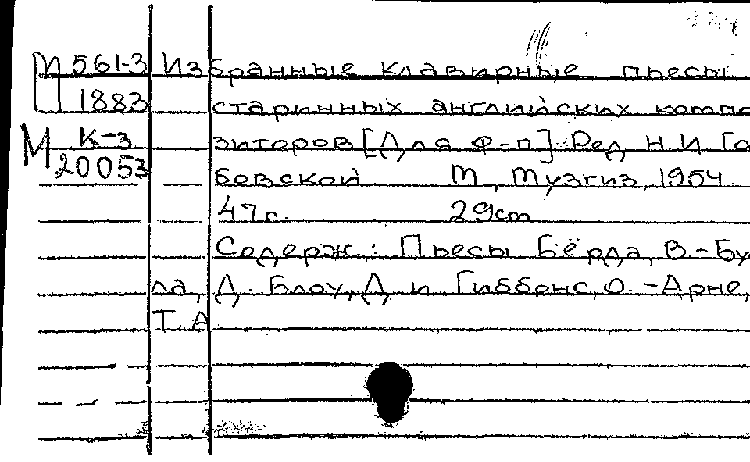 М 561-3 Избранные клавирные пьесы
1883 старинных английских компо
М К-3 зиторов [Для ф-п]. Ред. Н.И Го
20053 бовской М., Музгиз, 1954
47 с. 29 cm
Содерж.: Пьесы Бёрда, В.-Бу
ла, Д. Блоу, Д и Гиббонс, О.-Арне,
Т. А